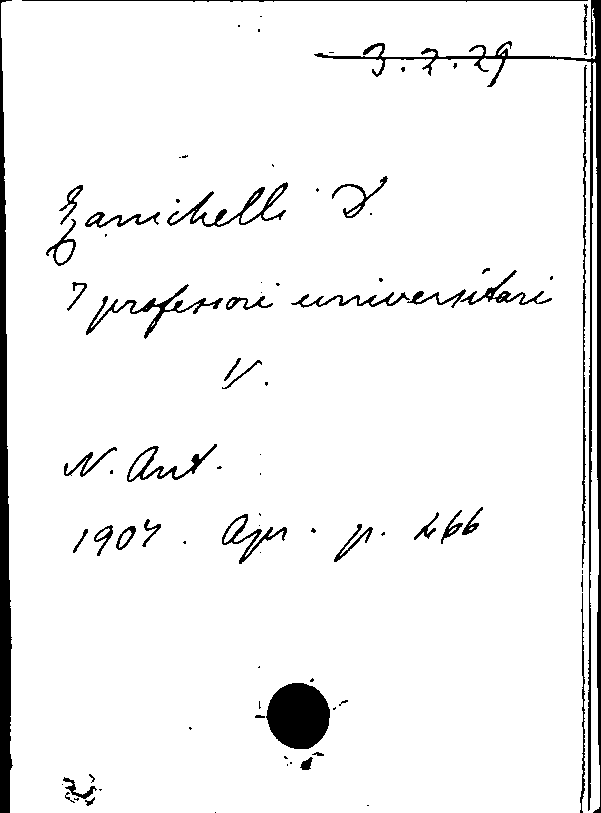 3.2.29
Zanichelli D.
I professori universitari
V.
N. Ant.
1907. Apr. p. 466